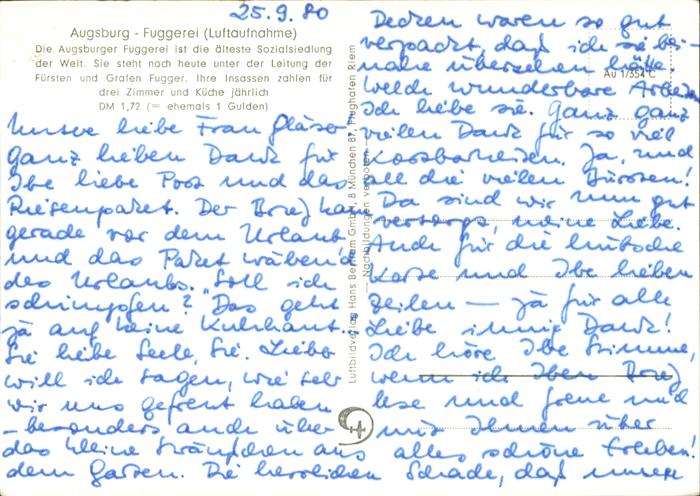 25.9.80
Augsburg - Fuggerei (Luftaufnahme)
Die Augsburger Fuggerei ist die älteste Sozialsiedlung
der Welt. Sie steht noch heute unter der Leitung der
Fürsten und Grafen Fugger. Ihre Insassen zahlen für
drei Zimmer und Küche jährlich
DM 1,72 (= ehemals 1 Gulden)
Unsere liebe Frau Gläser
ganz lieben Dank für
Ihe liebe Post und das
Riesenpaket. Der Brief kam
gerade vor dem Urlaub
und das Paket während
des Urlaubs. "Soll ich
schimpfen? Das geht
ja auf keine Kuhhaut..."
Sie liebe Seele, Sie. Lieber
will ich sagen, wie sehr
wir uns gefreut haben
- besonders auch über
das kleine Sträußchen aus
dem Garten. Die herrlichen
Decken waren so gut
verpackt, daß ich sie bei-
nahe übersehen hätte.
Welch wunderbare Arbeiten
Ich liebe sie. Ganz ganz
vielen Dank für so viel
Kostbarkeiten. Ja, und
all die vielen Bürsten!
Da sind wir nun gut
versorgt, meine Liebe.
Auch für die hübsche
Karte und Ihe lieben
Zeilen — ja für alle
Liebe innig Dank!
Ich höre Ihe Stimme,
wenn ich Ihen Brief
lese und freue mich
mit Ihnen über
alles schöne Erleben!
Schade, daß unsere
Au 1/354 C
Luftbildverlag Hans Bertram GmbH, 8 München 87, Flughafen Riem
— Nachbildungen verboten —